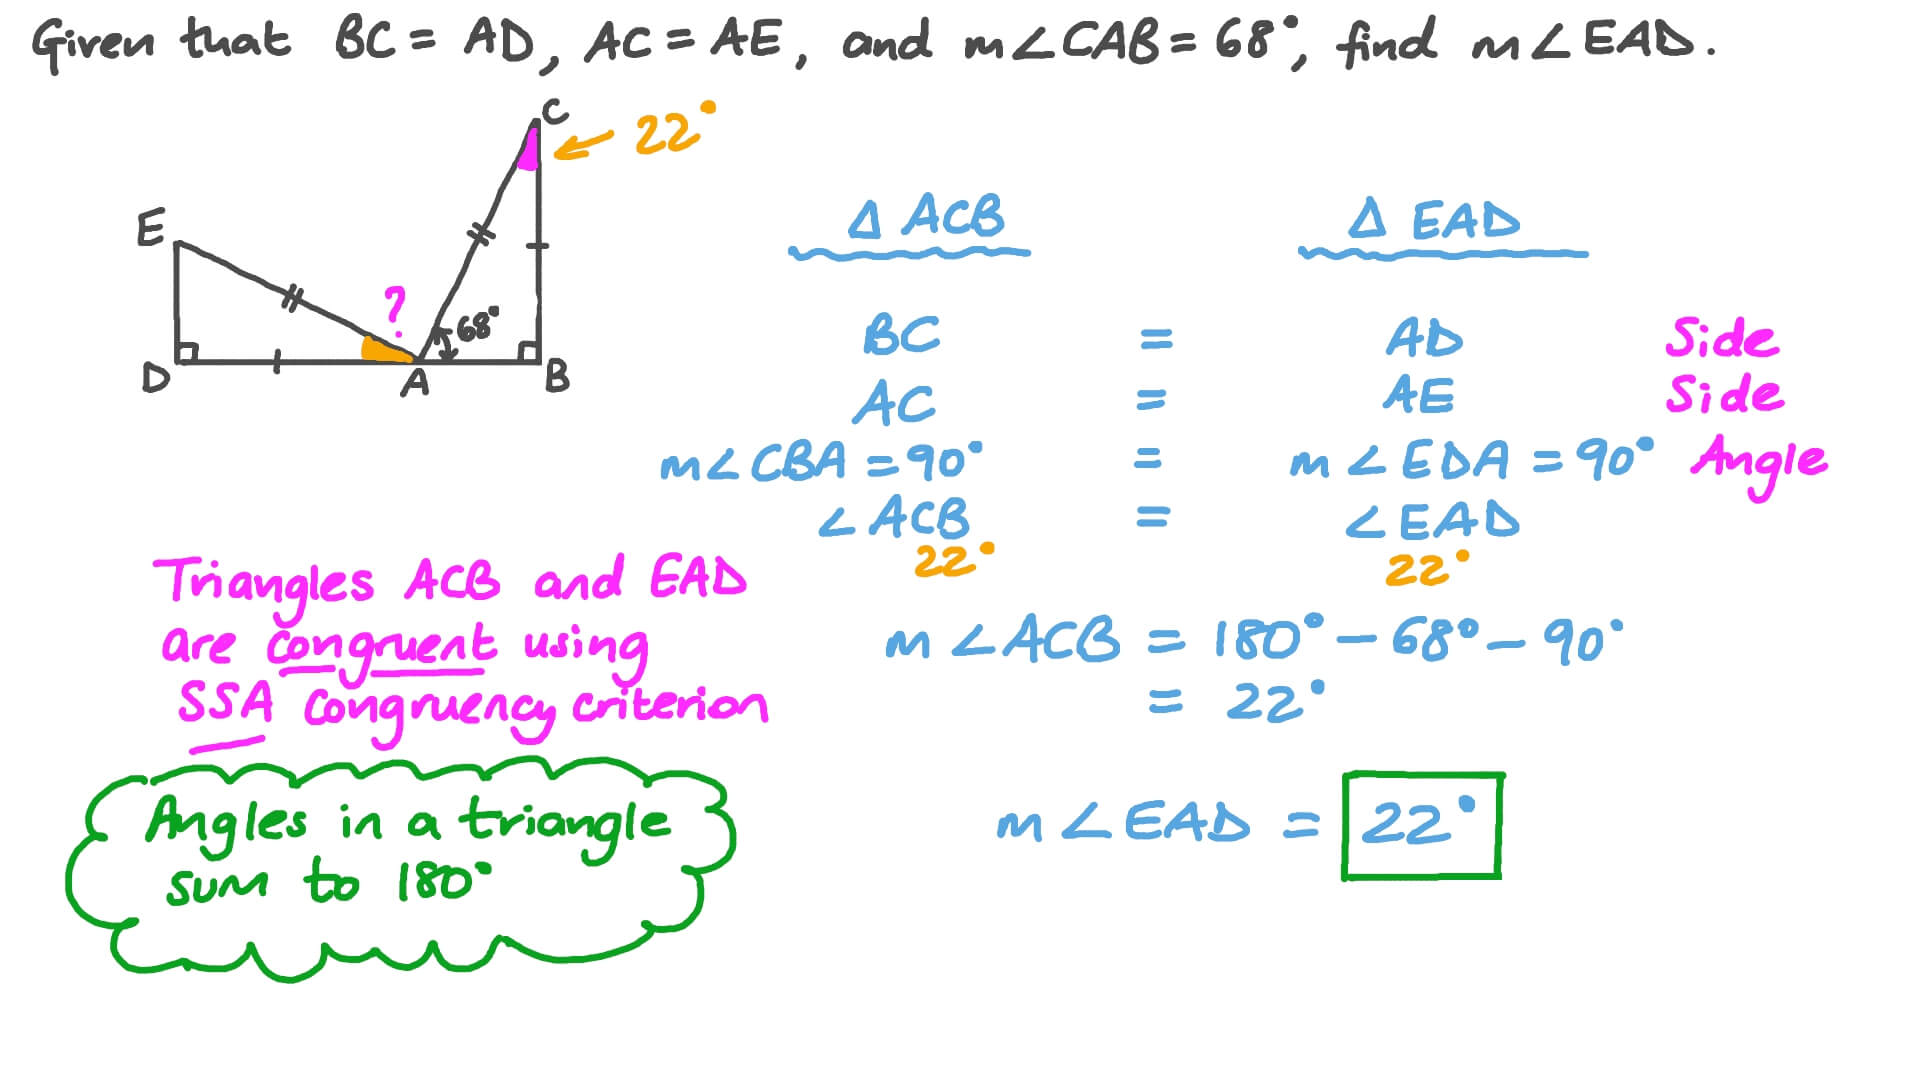 Given that BC = AD, AC = AE, and m∠CAB = 68°, find m∠EAD.
C
22°
E
?
68°
D
A
B
Δ ACB
Δ EAD
BC = AD Side
AC = AE Side
m∠CBA = 90° = m∠EDA = 90° Angle
∠ACB = ∠EAD
22° 22°
Triangles ACB and EAD
are congruent using
SSA congruency criterion
m∠ACB = 180° - 68° - 90°
= 22°
Angles in a triangle
sum to 180°
m∠EAD = 22°